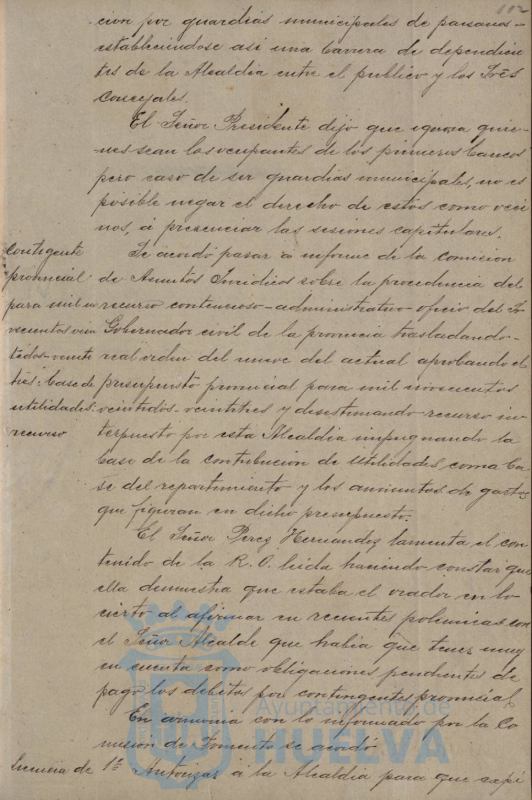 102
cion por guardias municipales de paisano=
estableciendose asi una barrera de dependien
tes de la Alcaldia entre el publico y los Srēs
Concejales.
El Señor Presidente dijo que ignora quie-
nes sean los ocupantes de los primeros bancos
pero caso de ser guardias municipales, no es
posible negar el derecho de estos como veci
nos, á presenciar las sesiones capitulares.
Contigente
provincial
para mil no
vecientos vein
tidos-veinte
tres: base de
utilidades:
recurso
Se acordó pasar á informe de la comision
de Asuntos Juridicos sobre la procedencia del
recurso contencioso-administrativo oficio del Sr
Gobernador civil de la provincia trasladando-
real orden del nueve del actual aprobando el
presupuesto provincial para mil novecientos
veintidos-veintitres y desestimando recurso in-
terpuesto por esta Alcaldia impugnando la
base de la contribucion de utilidades como ba
se del repartimiento y los aumentos de gastos
que figuran en dicho presupuesto.
El Señor Perez Hernandez lamenta el con
tenido de la R. O. leida haciendo constar que
ella demuestra que estaba el orador en lo
cierto al afirmar en recientes polemicas con
el Señor Alcalde que habia que tener muy
en cuenta como obligaciones pendientes de
pago los debitos por contingentes provincial
En armonia con lo informado por la Co
mision de Fomento se acordó
licencia de
1º Autorizar á la Alcaldia para que expi
Ayuntamiento de
HUELVA